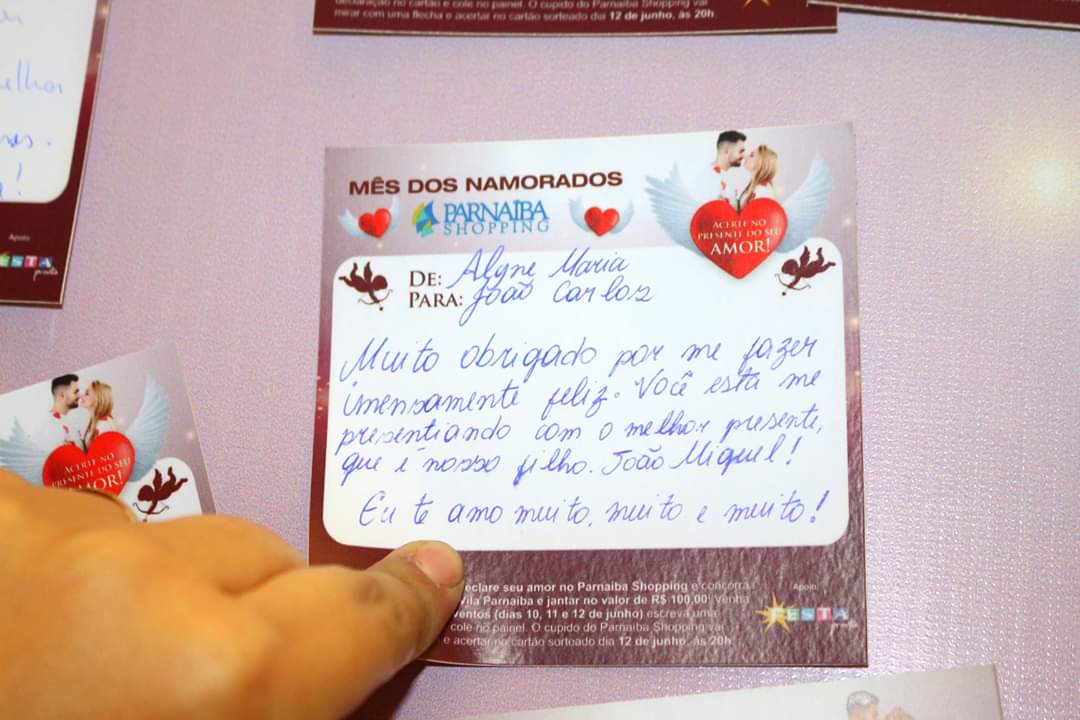 declaração no cartão e cole no painel. O cupido do Parnaiba Shopping vai
mirar com uma flecha e acertar no cartão sorteado dia 12 de junho, às 20h.
elhor
Apoio:
FESTA
MÊS DOS NAMORADOS
PARNAÍBA
SHOPPING
ACERTE NO
PRESENTE DO SEU
AMOR!
DE: Alyne Maria
PARA: João Carlos
Muito obrigado por me fazer
imensamente feliz. Você está me
presentiando com o melhor presente,
que é nosso filho. João Miguel!
Eu te amo muito, muito e muito!
ACERTE NO
PRESENTE DO SEU
eclare seu amor no Parnaiba Shopping e concorra
Vila Parnaiba e jantar no valor de R$ 100,00. Venha
ventos (dias 10, 11 e 12 de junho) escreva uma
cole no painel. O cupido do Parnaiba Shopping vai
e acertar no cartão sorteado dia 12 de junho, às 20h
Apoio:
FESTA